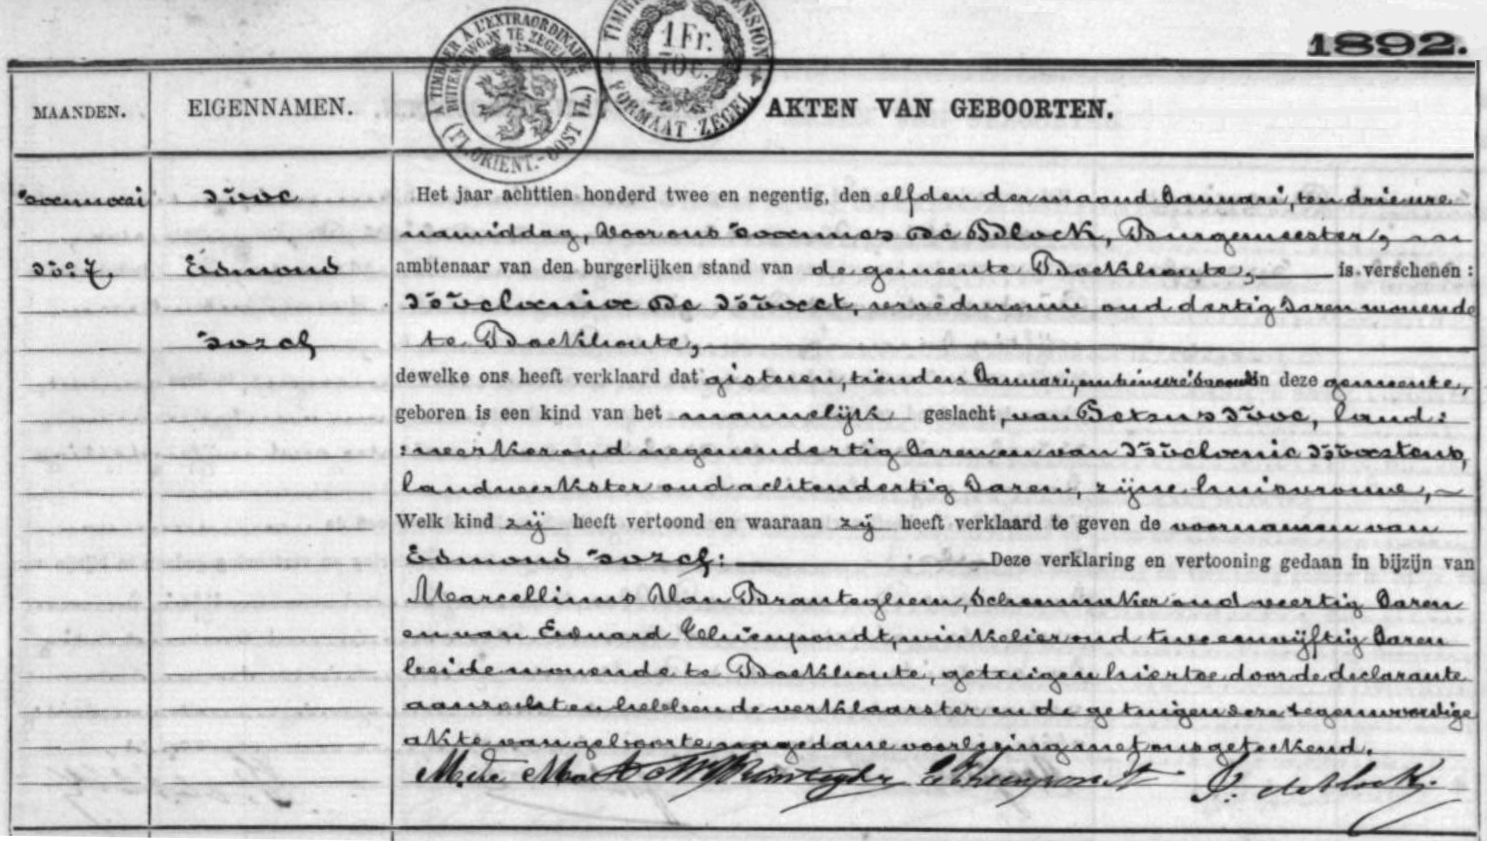 A TIMBRER À L'EXTRAORDINAIRE
BUITENGEWOJN TE ZEGELEN
(FL. ORIENT.-OOST VL.)
1 Fr.
FORMAAT ZEGEL
1892.
MAANDEN.
EIGENNAMEN.
AKTEN VAN GEBOORTEN.
Januari
Nº 7.
Edmond
Jozef
Het jaar achttien honderd twee en negentig, den elfden der maand Januari, ten drie ure
namiddag, Voor ons Joannes De Block, Burgemeester,
ambtenaar van den burgerlijken stand van de gemeente Bockhoute, is verschenen :
Melanie De Maet, vroedvrouw oud dertig Jaren wonende
te Bockhoute,
dewelke ons heeft verklaard dat gisteren, tienden Januari, in deze gemeente,
geboren is een kind van het mannelijk geslacht, van land:
:werker oud negenendertig Jaren en van Melanie
landwerkster oud achtendertig Jaren, zijne huisvrouwe,
Welk kind zij heeft vertoond en waaraan zij heeft verklaard te geven de voornamen van
Edmond Jozef: Deze verklaring en vertooning gedaan in bijzijn van
Marcellinus Van Branteghem, Schoenmaker oud veertig Jaren
en van Eduard Thienpondt, winkelier oud tweeenvijftig Jaren
beide wonende te Bockhoute, getuigen hiertoe door de declarante
aanzocht en hebben de verklaarster en de getuigen deze tegenwoordige
akte van geboorte na gedane voorlezing met ons geteekend.